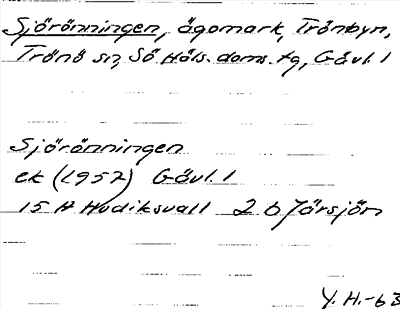 Sjörönningen, ägomark, Trönbyn,
Trönö sn, Sö Häls. doms. tg, Gävl. l
Sjörönningen
ek (1957) Gävl. l
15 H Hudiksvall 2 b Järsjön
Y. H. -63